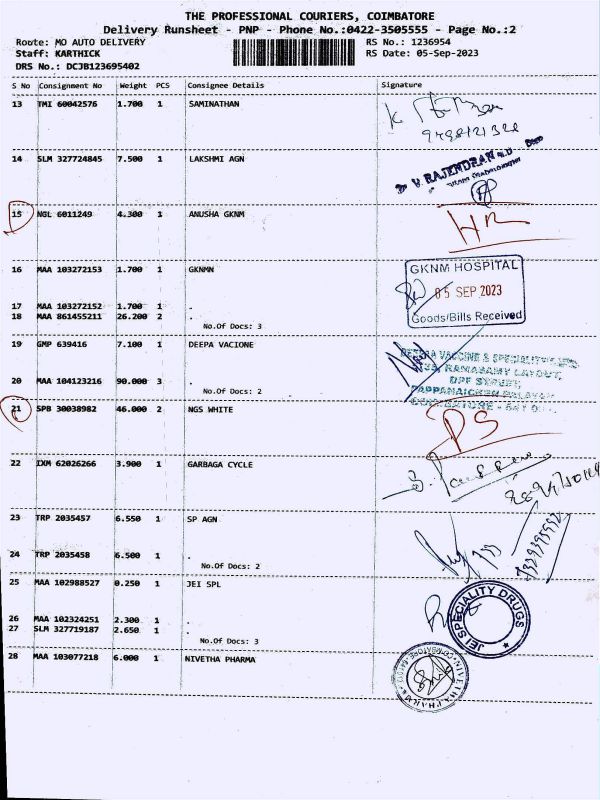 THE PROFESSIONAL COURIERS, COIMBATORE
Delivery Runsheet - PNP - Phone No.:0422-3505555 - Page No.:2
Route: MO AUTO DELIVERY RS No.: 1236954
Staff: KARTHICK RS Date: 05-Sep-2023
DRS No.: DCJB123695402
S No Consignment No Weight PCS Consignee Details Signature
13 TMI 60042576 1.700 1 SAMINATHAN
14 SLM 327724845 7.500 1 LAKSHMI AGN
Dr V. RAJENDRAN
15 NGL 6011249 4.300 1 ANUSHA GKNM
HR
16 MAA 103272153 1.700 1 GKNMN
GKNM HOSPITAL
05 SEP 2023
Goods/Bills Received
17 MAA 103272152 1.700 1 .
18 MAA 861455211 26.200 2 .
No.Of Docs: 3
19 GMP 639416 7.100 1 DEEPA VACIONE
VACCINE & SPECIALITY
RAMASAMY LAYOUT,
DPF STREET,
PAPPANAICKEN PALAYAM
20 MAA 104123216 90.000 3 .
No.Of Docs: 2
21 SPB 30038982 46.000 2 NGS WHITE
PS
22 IXM 62026266 3.900 1 GARBAGA CYCLE
23 TRP 2035457 6.550 1 SP AGN
24 TRP 2035458 6.500 1 .
No.Of Docs: 2
25 MAA 102988527 0.250 1 JEI SPL
JEI SPECIALITY DRUGS
26 MAA 102324251 2.300 1 .
27 SLM 327719187 2.650 1 .
No.Of Docs: 3
28 MAA 103077218 6.000 1 NIVETHA PHARMA